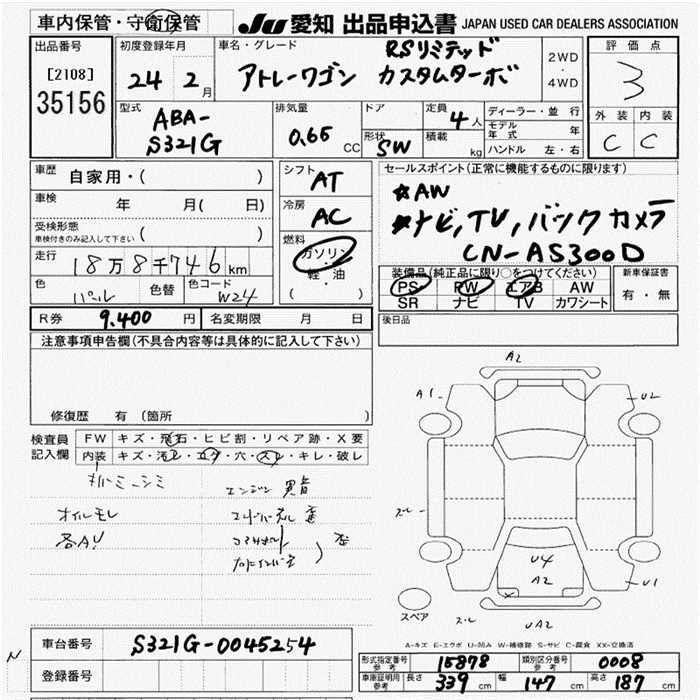 車内保管・守衛保管
JU 愛知 出品申込書 JAPAN USED CAR DEALERS ASSOCIATION
出品番号
[2108]
35156
初度登録年月
24 2月
車名・グレード
RSリミテッド
アトレーワゴン カスタムターボ
2WD
・
4WD
評価点
3
外装 内装
C C
型式
ABA-
S321G
排気量
0.65 CC
ドア
形状
SW
定員
4人
積載
kg
ディーラー・並行
モデル年式 年
ハンドル 左・右
車歴
自家用・( )
車検 年 月( 日)
受検形態
車検付きのみ記入して下さい ( )
走行
18万8千746km
色
パール
色替
色コード
W24
シフト
AT
冷房
AC
燃料
ガソリン
・
軽・油
( )
セールスポイント(正常に機能するものに限ります)
☆AW
★ナビ,TV,バックカメラ
CN-AS300D
装備品(純正品に限り○をつけてください)
PS PW エアB AW
SR ナビ TV カワシート
新車保証書
有・無
R券 9.400 円
名変期限 月 日
後日品
注意事項申告欄(不具合内容等は具体的に記入して下さい)
修復歴 有(箇所
検査員
記入欄
FW キズ・飛石・ヒビ割・リペア跡・X要
内装 キズ・汚レ・コゲ・穴・スレ・キレ・破レ
オイルモレ
各AU
エンジン 異音
A2
A1
U2
U4
A2
U1
UA2
スペア
A-キズ E-エクボ U-凹み W-補修跡 S-サビ C-腐食 XX-交換済
N
車台番号 S321G-0045254
登録番号
型式指定番号
参考
15878
類別区分番号
参考
0008
車庫証明用
参考
長さ 339 cm 幅 147 cm 高さ 187 cm